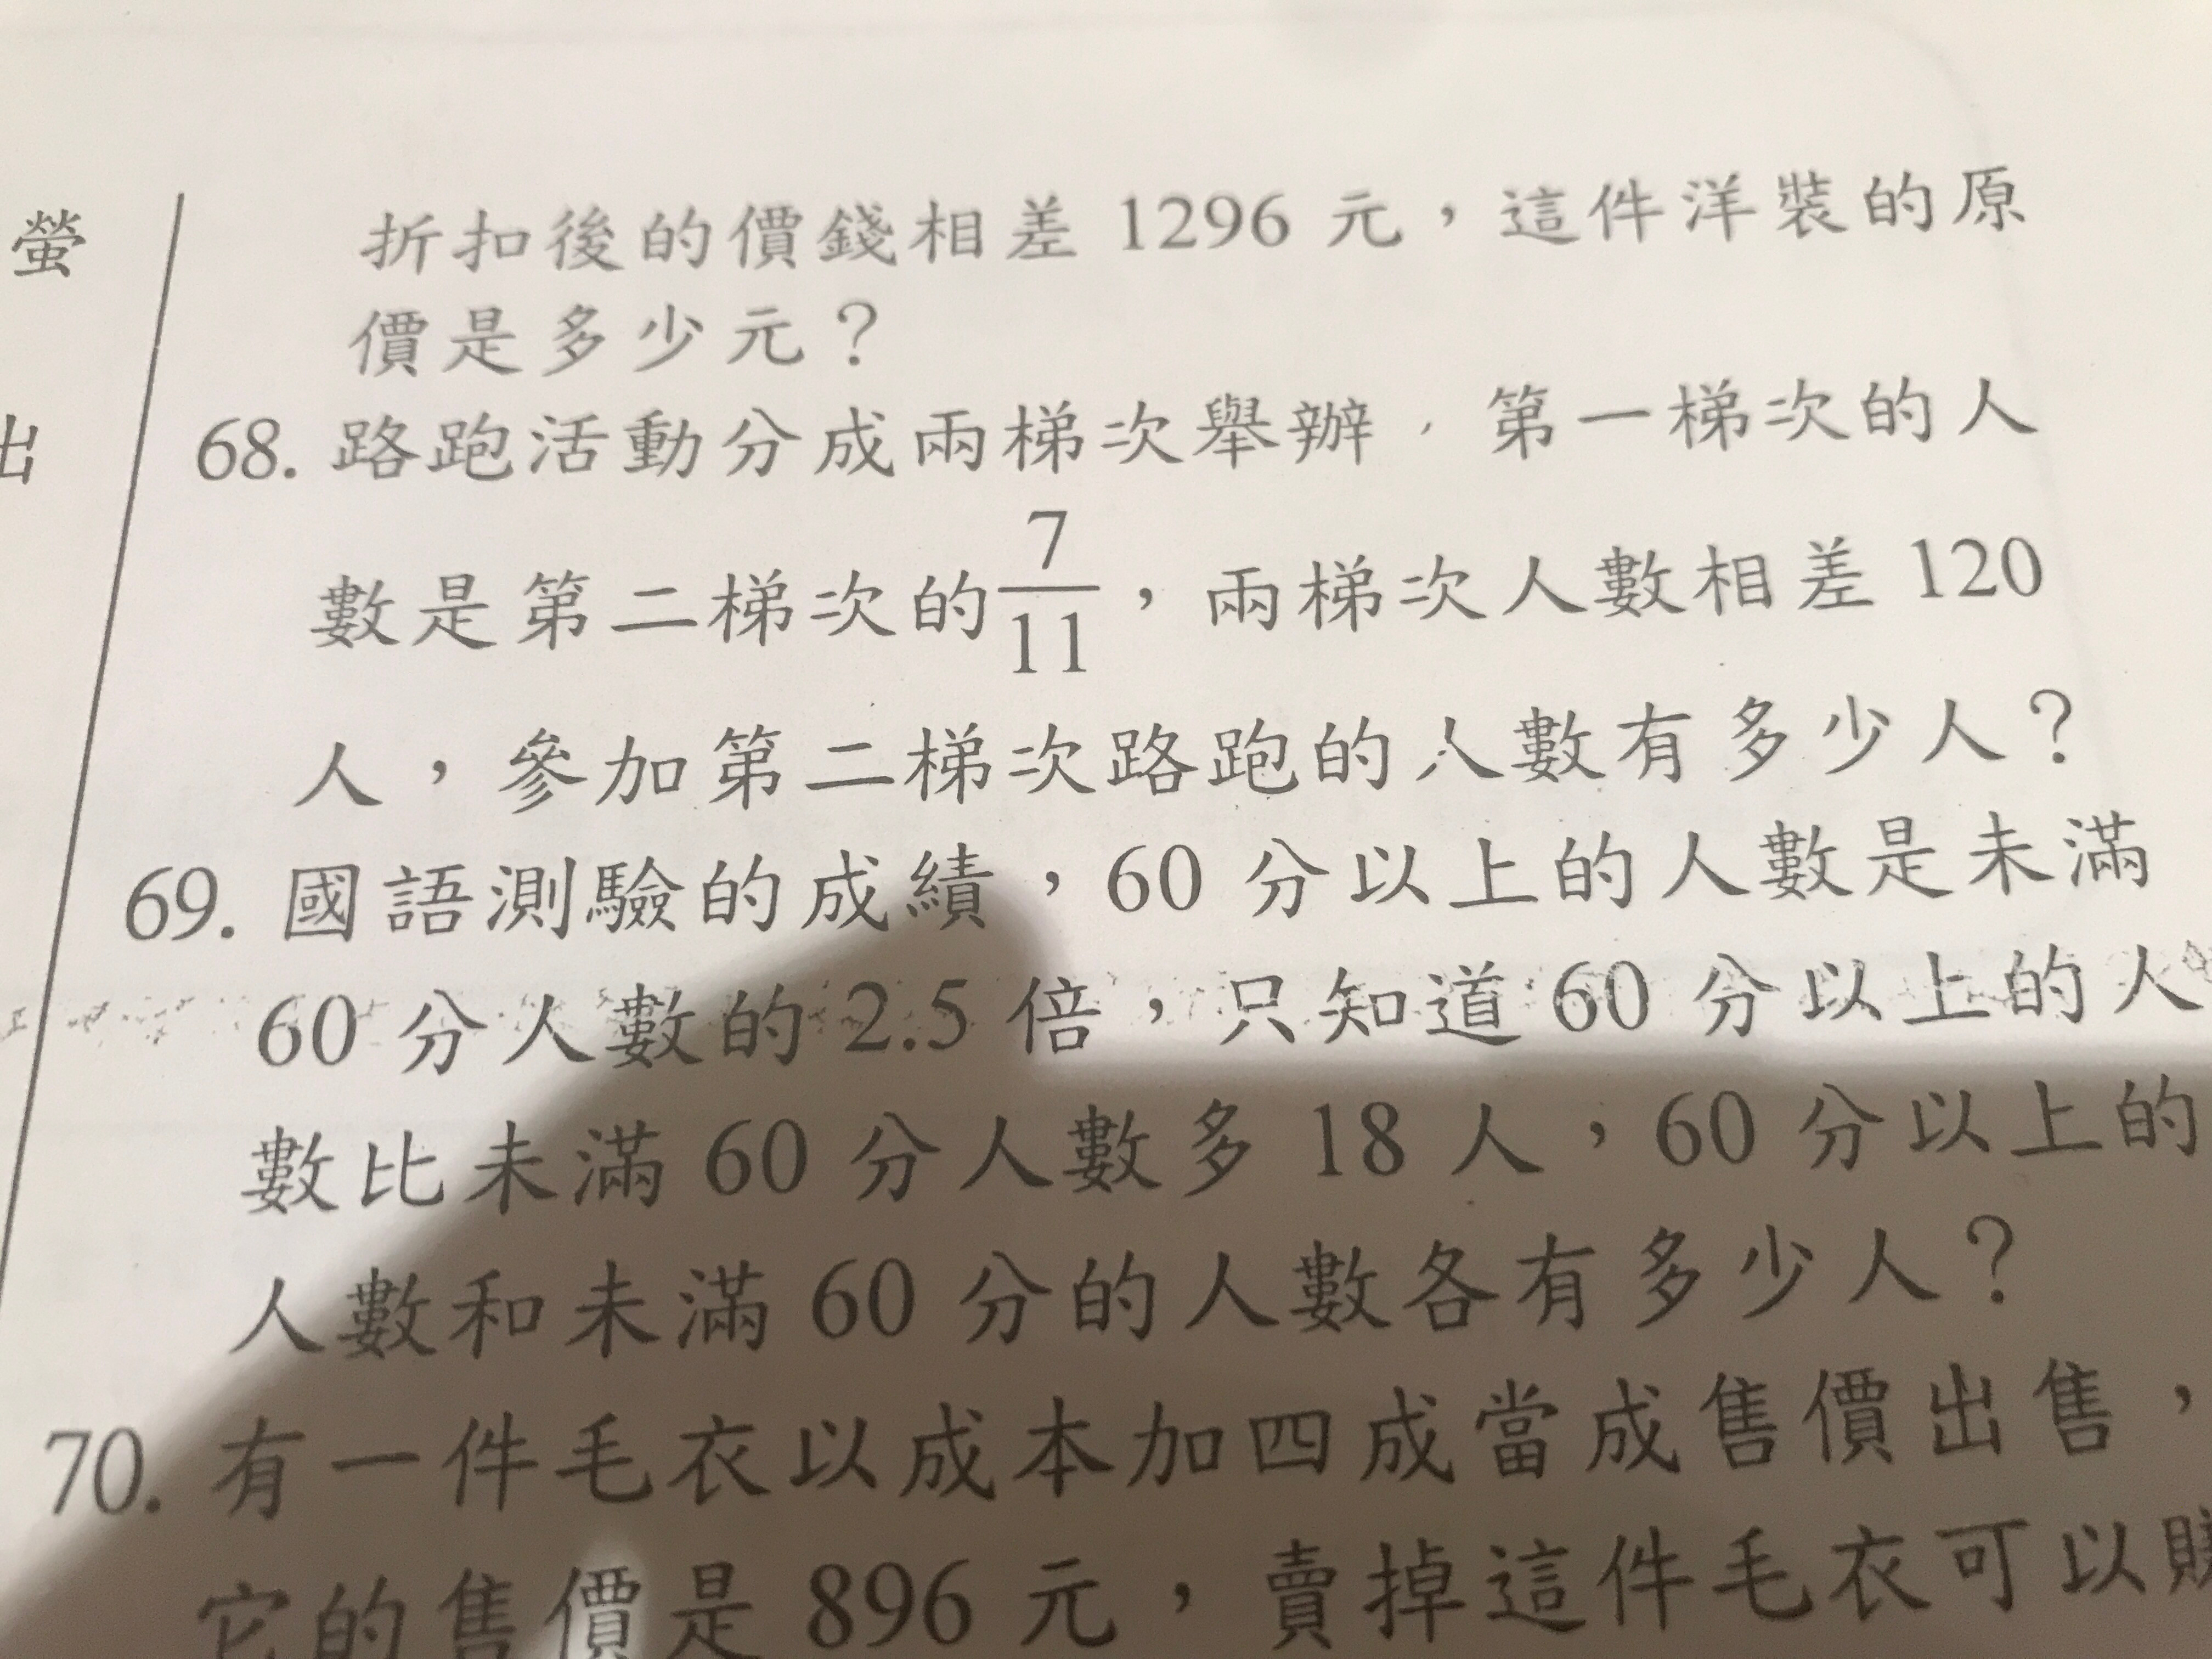 螢
出
折扣後的價錢相差 1296 元，這件洋裝的原
價是多少元？
68. 路跑活動分成兩梯次舉辦，第一梯次的人
數是第二梯次的7/11，兩梯次人數相差 120
人，參加第二梯次路跑的人數有多少人？
69. 國語測驗的成績，60 分以上的人數是未滿
60 分人數的 2.5 倍，只知道 60 分以上的人
數比未滿 60 分人數多 18 人，60 分以上的
人數和未滿 60 分的人數各有多少人？
70. 有一件毛衣以成本加四成當成售價出售，
它的售價是 896 元，賣掉這件毛衣可以賺